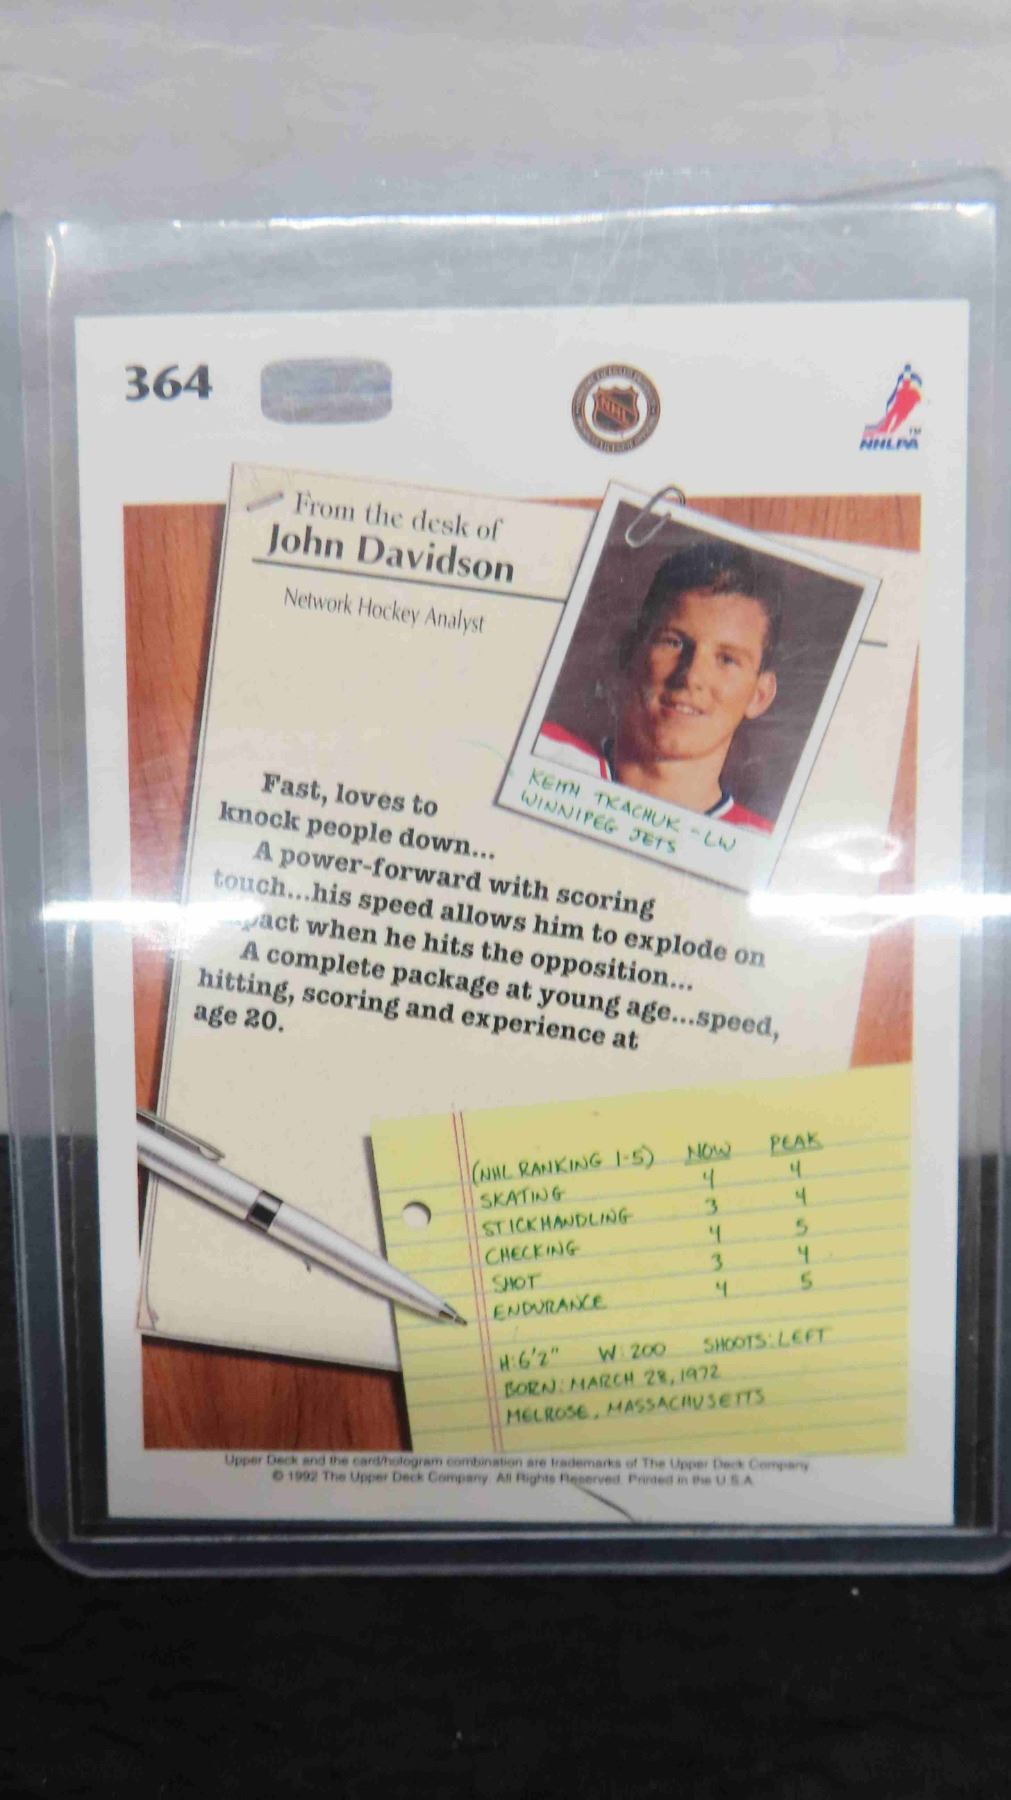 364
NHL
NHLPA
From the desk of
John Davidson
Network Hockey Analyst
KEITH TKACHUK - LW
WINNIPEG JETS
Fast, loves to
knock people down...
A power-forward with scoring
touch...his speed allows him to explode on
pact when he hits the opposition...
A complete package at young age...speed,
hitting, scoring and experience at
age 20.
(NHL RANKING 1-5) NOW PEAK
SKATING 4 4
STICKHANDLING 3 4
CHECKING 4 5
SHOT 3 4
ENDURANCE 4 5
H: 6'2" W: 200 SHOOTS: LEFT
BORN: MARCH 28, 1972
MELROSE, MASSACHUSETTS
Upper Deck and the card/hologram combination are trademarks of The Upper Deck Company
© 1992 The Upper Deck Company. All Rights Reserved. Printed in the U.S.A.